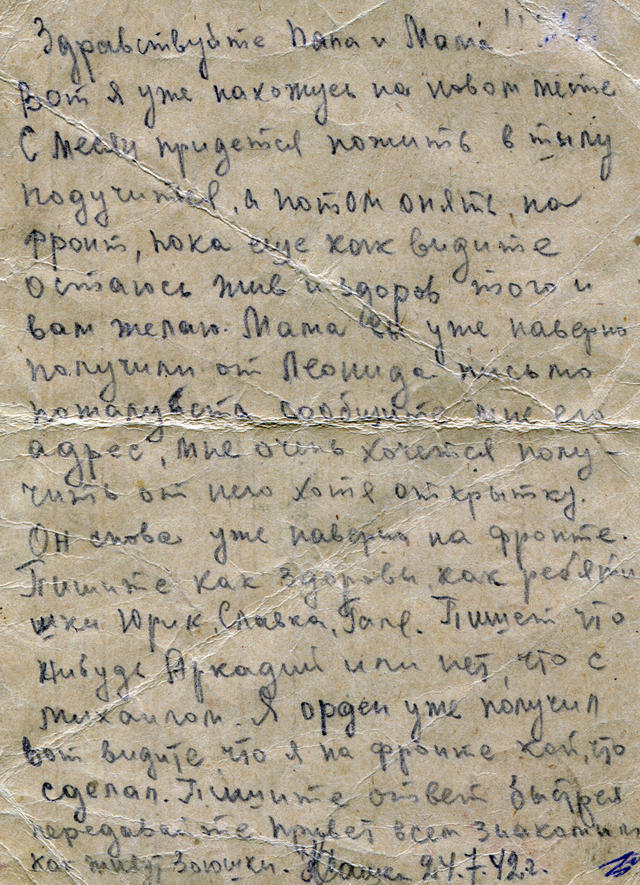 Здравствуйте Папа и Мама!!
Вот я уже нахожусь на новом месте
С месяц придется пожить в тылу
подучится, а потом опять на
фронт, пока еще как видите
остаюсь жив и здоров того и
вам желаю. Мама вы уже наверно
получили от Леонида письмо
пожалуйста сообщите мне его
адрес, мне очень хочется полу-
чить от него хотя открытку.
Он снова уже наверно на фронте.
Пишите как здоровы, как ребяти
шки Юрик, Славка, Галя. Пишет что
нибудь Аркадий или нет, что с
михаилом. Я орден уже получил
вот видите что я на фронте кой, что
сделал. Пишите ответ быстрея
передавайте привет всем знакомым
как живут 24.7.42.г.